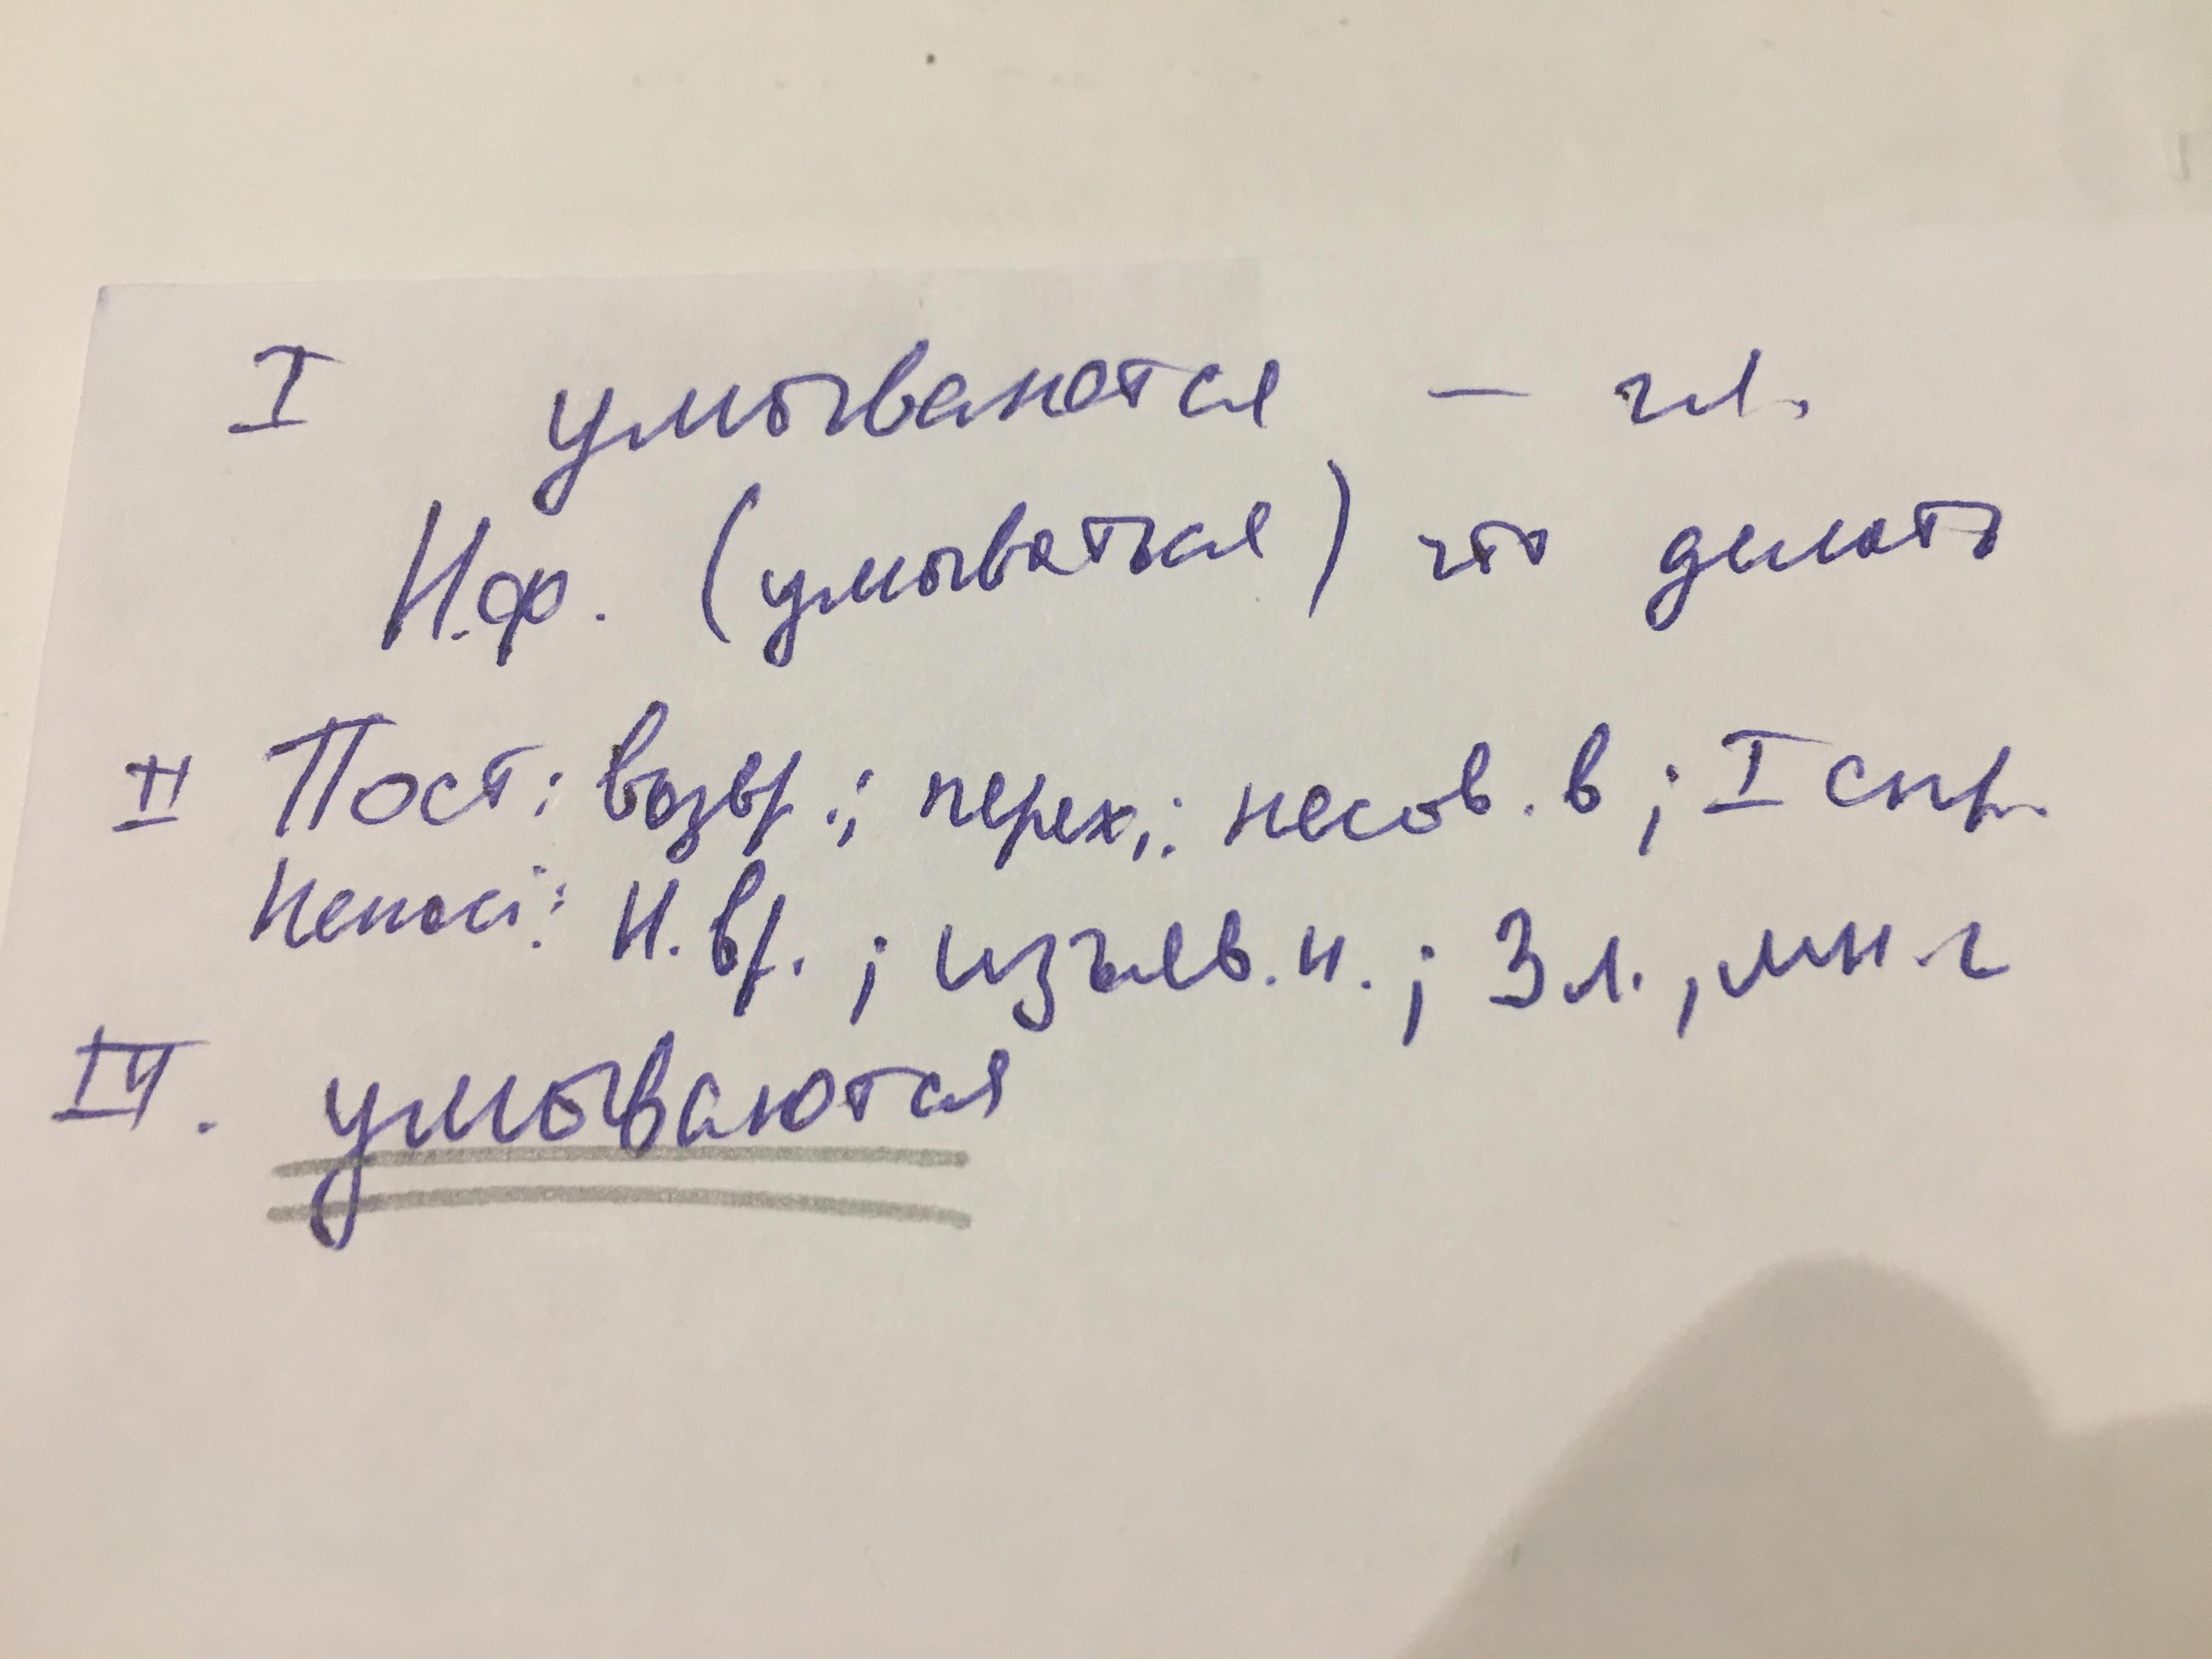 I умываются – гл.
Н.ф. (умываться) что делать
II Пост: возвр.; перех.; несов. в; I спр.
Непост: Н. вр.; изъяв. н.; 3 л., мн. г
III. умываются